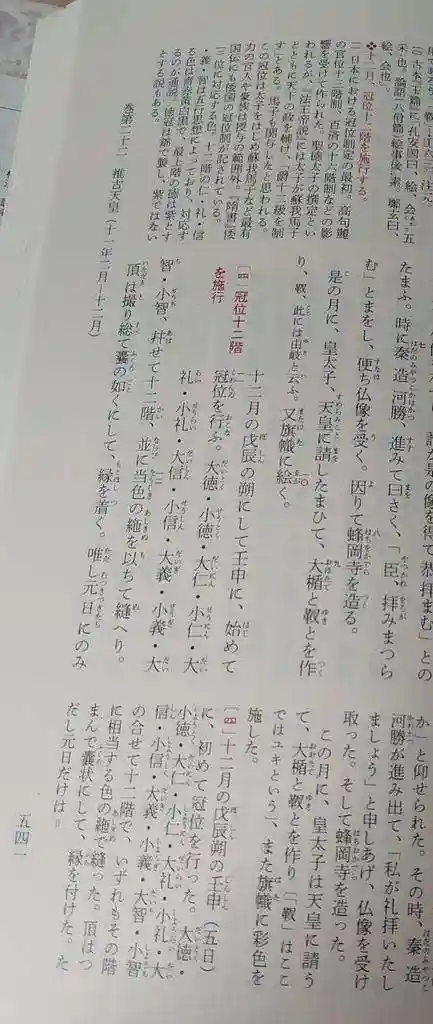 二 古本『玉篇』に「孔安国曰、絵、会㆓五
采㆒也。論語、八佾篇「絵事後㆑素。鄭玄曰、
絵、会也」。
❖十二月、冠位十二階を施行する。
一 日本における冠位制定の最初。高句麗
の官位十二階制、百済の十六階制などの影
響を受けて作られた。聖徳太子の撰定とい
われるが、『法王帝説』には太子が蘇我馬子
とともに天下の政を輔け、「爵十二級を制
す」とある。馬子も関与したと思われる。
この冠位は太子をはじめ蘇我馬子など最有
力の官人や豪族は授与の範囲外。『隋書』倭
国伝にも倭国の冠位制が記されている。
三 位に対応する色。十二階の仁・礼・信
・義・智は五行思想によっており、対応す
る色は青赤黄白黒で、最上階の徳は紫とす
るのが通説。徳冠は爵で製し、紫ではない
とする説もある。
巻第二十二 推古天皇(十一年二月―十二月)
たまふ。時に秦造河勝、進みて曰さく、「臣、拝みまつら
む」とまをし、便ち仏像を受く。因りて蜂岡寺を造る。
是の月に、皇太子、天皇に請したまひて、大楯と靫とを作
り、靫、此には由岐と云ふ。又旗幟に絵く。
〔四〕冠位十二階
を施行
十二月の戊辰の朔にして壬申に、始めて
冠位を行ふ。大徳・小徳・大仁・小仁・大
礼・小礼・大信・小信・大義・小義・大
智・小智、幷せて十二階、並に当色の絁を以ちて縫へり。
頂は撮り総て囊の如くにして、縁を着く。唯し元日にのみ
か」と仰せられた。その時、秦造
河勝が進み出て、「私が礼拝いたし
ましょう」と申しあげ、仏像を受け
取った。そして蜂岡寺を造った。
この月に、皇太子は天皇に請う
て、大楯と靫とを作り「靫」はここ
ではユキという」、また旗幟に彩色を
施した。
〔四〕十二月の戊辰朔の壬申(五日)
に、初めて冠位を行った。大徳・
小徳・大仁・小仁・大礼・小礼・大
信・小信・大義・小義・大智・小智
の合せて十二階で、いずれもその階
に相当する色の絁で縫った。頂はつ
まんで囊状にして、縁を付けた。た
だし元日だけは＝
五四一